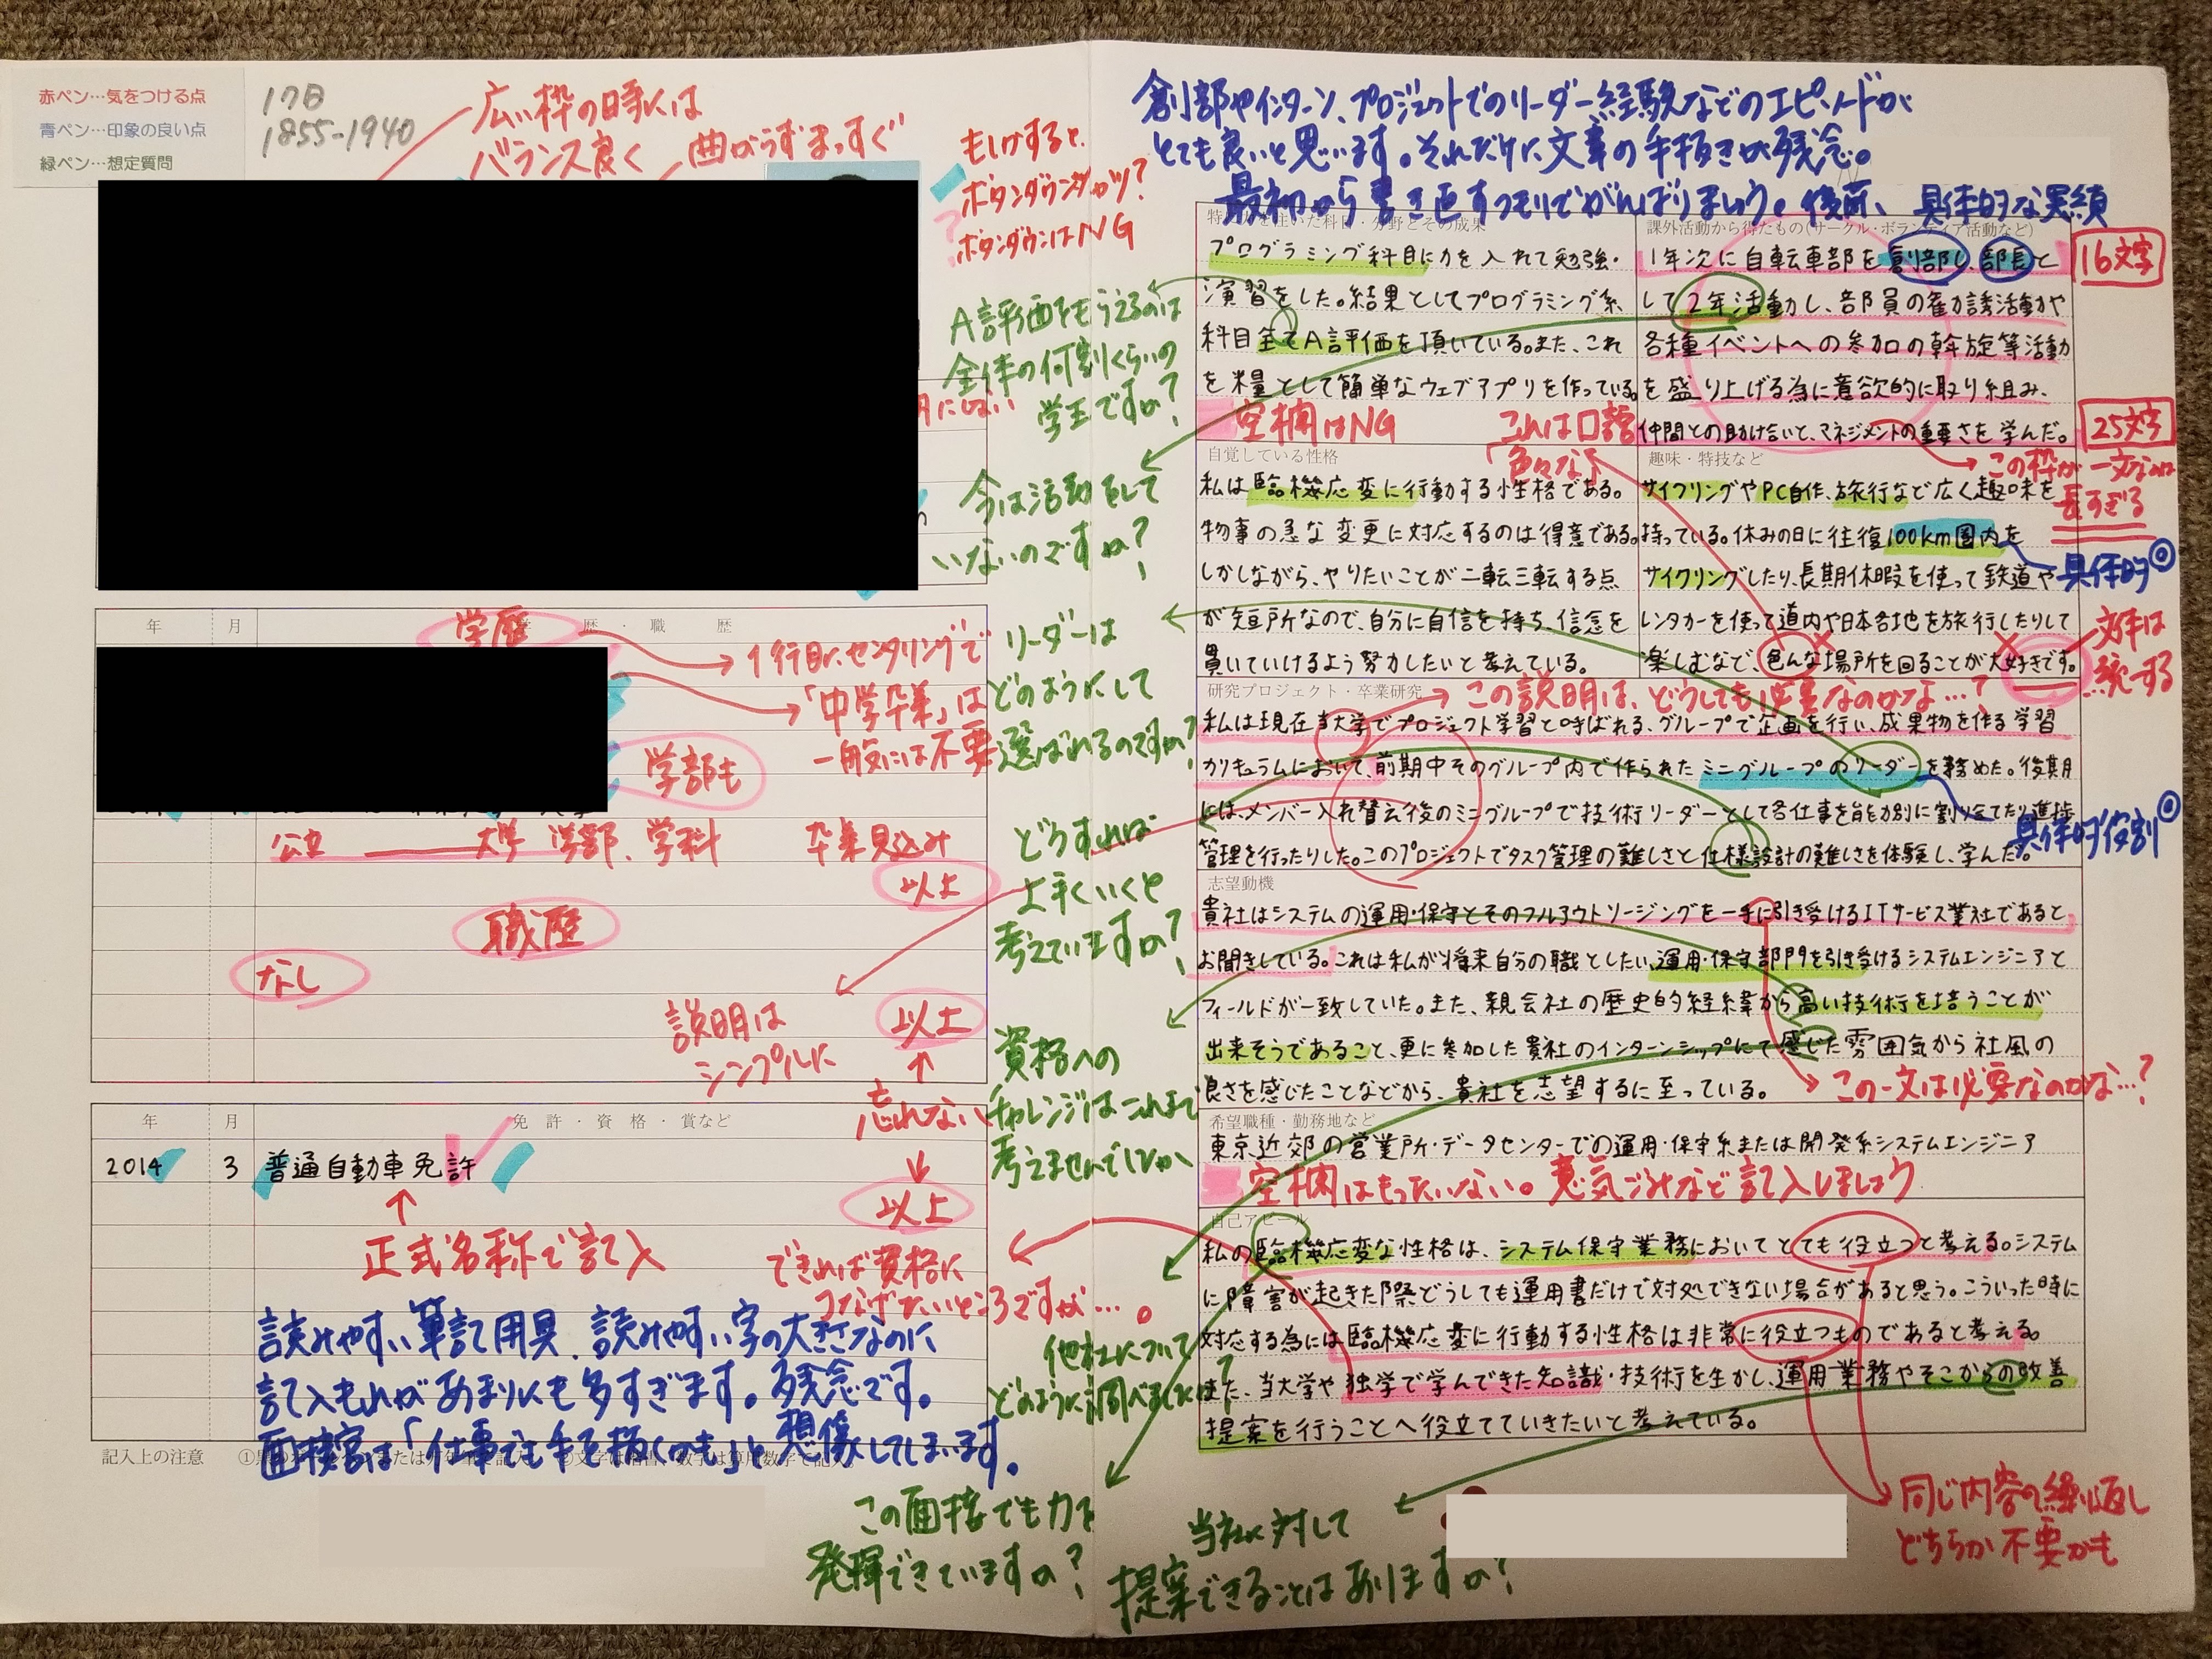 赤ペン…気をつける点
青ペン…印象の良い点
緑ペン…想定質問
17B
1855-1940
広い枠の時には
バランス良く
曲がらずまっすぐ
もしかすると、
ボタンダウンシャツ?
ボタンダウンはNG
年 月 学歴・職歴
学歴
1行目に、センタリングで
「中学卒業」は
一般には不要
学部も
公立 大学 学部、学科 卒業見込み
以上
職歴
なし
説明は
シンプルに
以上
忘れない
年 月 免許・資格・賞など
2014 3 普通自動車免許
正式名称で記入
以上
できれば資格に
つなげたいところですが…。
読みやすい筆記用具、読みやすい字の大きさなのに
記入もれがあまりにも多すぎます。残念です。
面接官は「仕事でも手を抜くかも」と想像してしまいます。
記入上の注意
A評価をもらえるのは
全体の何割くらいの
学生ですか?
今は活動をして
いないのですか?
リーダーは
どのようにして
選ばれるのですか?
どうすれば
上手くいくと
考えていますか?
資格への
チャレンジはこれまで
考えませんでしたか
他社について
どのように調べましたか?
この面接でも力を
発揮できていますか?
当社に対して
提案できることはありますか?
創部やインターン、プロジェクトでのリーダー経験などのエピソードが
とても良いと思います。それだけに文章の手抜きが残念。
最初から書き直すつもりでがんばりましょう。
具体的な実績
プログラミング科目に力を入れて勉強・
演習をした。結果としてプログラミング系
科目全てA評価を頂いている。また、これ
を糧として簡単なウェブアプリを作っている。
空欄はNG
課外活動から得たもの(サークル・ボランティア活動など)
1年次に自転車部を創部し、部長と
して2年活動し、部員の勧誘活動や
各種イベントへの参加の斡旋等活動
を盛り上げる為に意欲的に取り組み、
仲間との助け合いと、マネジメントの重要さを学んだ。
16文字
25文字
この枠が一文なのは
長すぎる
自覚している性格
私は臨機応変に行動する性格である。
物事の急な変更に対応するのは得意である。
しかしながら、やりたいことが二転三転する点
が短所なので、自分に自信を持ち、信念を
貫いていけるよう努力したいと考えている。
これは口語
「色々な」
趣味・特技など
サイクリングやPC自作、旅行など広く趣味を
持っている。休みの日に往復100km圏内を
サイクリングしたり、長期休暇を使って鉄道や
レンタカーを使って道内や日本各地を旅行したりして
楽しむなど、色んな場所を回ることが大好きです。
具体的◎
文末は
統一する
研究プロジェクト・卒業研究
この説明は、どうしても必要なのかな…?
私は現在当大学でプロジェクト学習と呼ばれる、グループで企画を行い、成果物を作る学習
カリキュラムにおいて、前期中そのグループ内で作られたミニグループのリーダーを務めた。後期
には、メンバー入れ替え後のミニグループで技術リーダーとして各仕事を能力別に割り当てたり進捗
管理を行ったりした。このプロジェクトでタスク管理の難しさと仕様設計の難しさを体験し、学んだ。
具体的役割◎
志望動機
貴社はシステムの運用・保守とそのフルアウトソージングを一手に引き受けるITサービス業社であると
お聞きしている。これは私が将来自分の職としたい、運用・保守部門を引き受けるシステムエンジニアと
フィールドが一致していた。また、親会社の歴史的経緯から高い技術を培うことが
出来そうであること、更に参加した貴社のインターンシップにて感じた雰囲気から社風の
良さを感じたことなどから、貴社を志望するに至っている。
この一文は必要なのかな…?
希望職種・勤務地など
東京近郊の営業所・データセンターでの運用・保守系または開発系システムエンジニア
空欄はもったいない。意気ごみなど記入しましょう
自己アピール
私の臨機応変な性格は、システム保守業務においてとても役立つと考える。システム
に障害が起きた際どうしても運用書だけで対処できない場合があると思う。こういった時に
対応する為には臨機応変に行動する性格は非常に役立つものであると考える。
また、当大学や独学で学んできた知識・技術を生かし、運用業務やそこからの改善
提案を行うことへ役立てていきたいと考えている。
同じ内容の繰り返し
どちらか不要かも